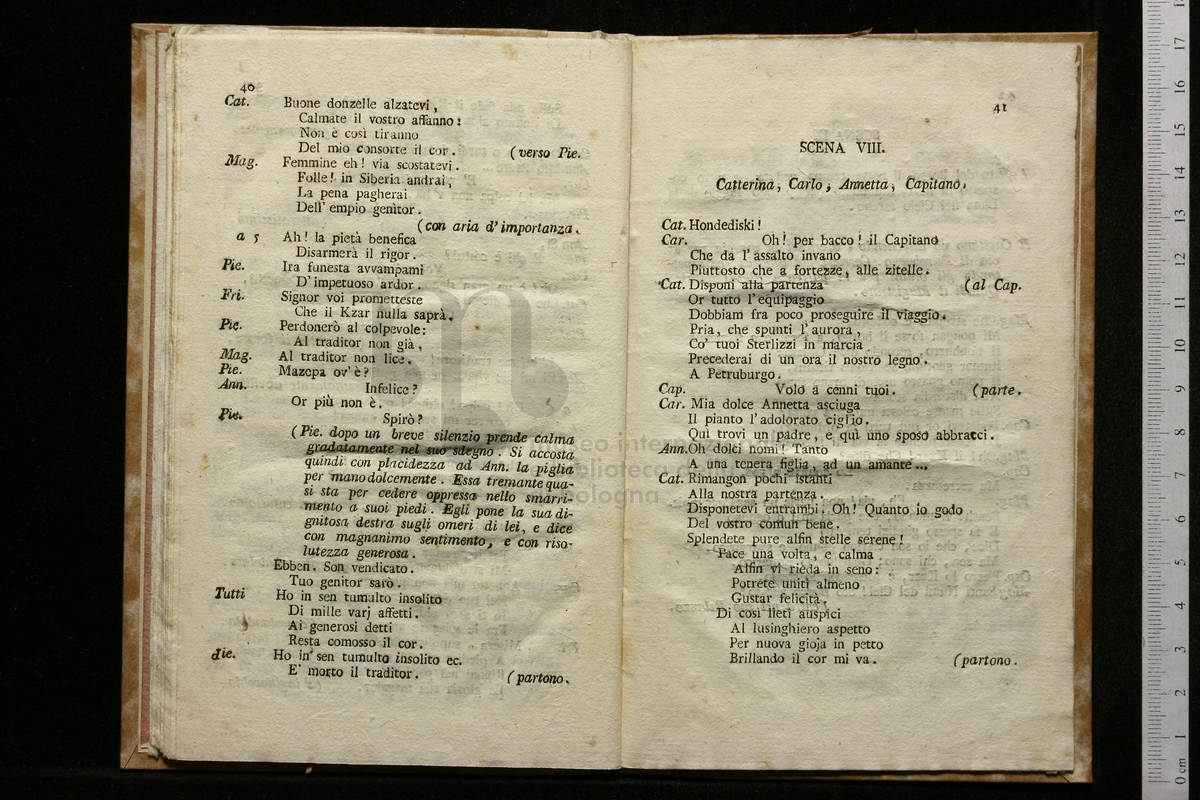 40
Cat. Buone donzelle alzatevi,
Calmate il vostro affanno:
Non è così tiranno
Del mio consorte il cor. (verso Pie.
Mag. Femmine eh! via scostatevi.
Folle! in Siberia andrai,
La pena pagherai
Dell' empio genitor.
(con aria d' importanza.
a 5 Ah! la pietà benefica
Disarmerà il rigor.
Pie. Ira funesta avvampami
D' impetuoso ardor.
Fri. Signor voi prometteste
Che il Kzar nulla saprà.
Pie. Perdonerò al colpevole:
Al traditor non già.
Mag. Al traditor non lice.
Pie. Mazepa ov' è?
Ann. Infelice?
Or più non è.
Pie. Spirò?
(Pie. dopo un breve silenzio prende calma
gradatamente nel suo sdegno. Si accosta
quindi con placidezza ad Ann. la piglia
per mano dolcemente. Essa tremante qua-
si sta per cedere oppressa nello smarri-
mento a suoi piedi. Egli pone la sua di-
gnitosa destra sugli omeri di lei, e dice
con magnanimo sentimento, e con riso-
lutezza generosa.
Ebben. Son vendicato.
Tuo genitor sarò.
Tutti Ho in sen tumulto insolito
Di mille varj affetti.
Ai generosi detti
Resta comosso il cor.
Pie. Ho in sen tumulto insolito ec.
E' morto il traditor. (partono.
41
SCENA VIII.
Catterina, Carlo, Annetta, Capitano.
Cat. Hondediski!
Car. Oh! per bacco! il Capitano
Che da l' assalto invano
Piuttosto che a fortezze, alle zitelle.
Cat. Disponi alla partenza (al Cap.
Or tutto l' equipaggio
Dobbiam fra poco proseguire il viaggio.
Pria, che spunti l' aurora,
Co' tuoi Sterlizzi in marcia
Precederai di un ora il nostro legno.
A Petruburgo.
Cap. Volo a cenni tuoi. (parte.
Car. Mia dolce Annetta asciuga
Il pianto l' adolorato ciglio.
Quì trovi un padre, e quì uno sposo abbracci.
Ann. Oh dolci nomi! Tanto
A una tenera figlia, ad un amante...
Cat. Rimangon pochi istanti
Alla nostra partenza.
Disponetevi entrambi. Oh! Quanto io godo
Del vostro comun bene.
Splendete pure alfin stelle serene!
Pace una volta, e calma
Alfin vi rieda in seno:
Potrete uniti almeno
Gustar felicità.
Di così lieti auspici
Al lusinghiero aspetto
Per nuova gioja in petto
Brillando il cor mi va. (partono.